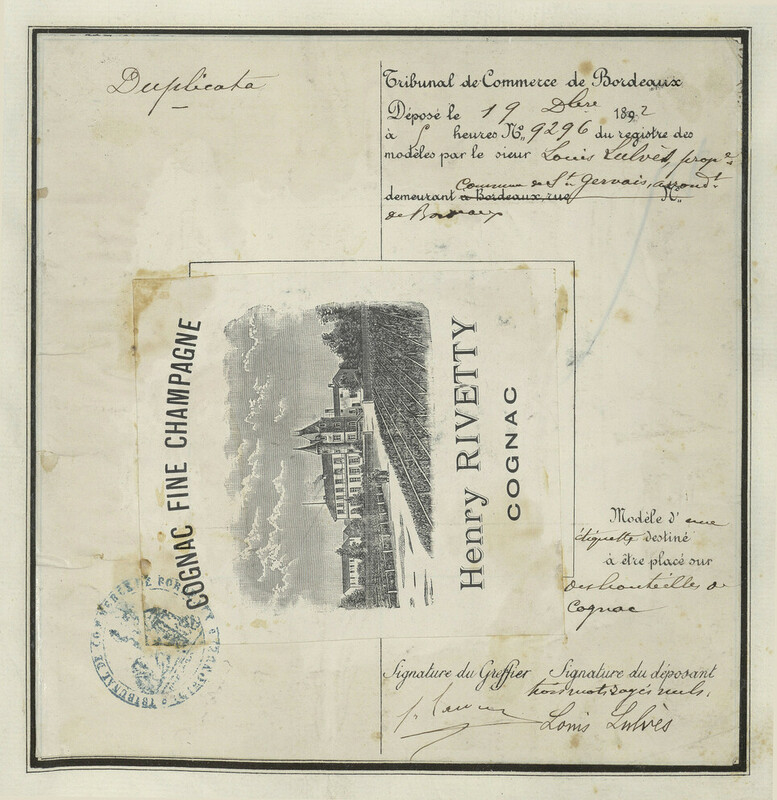 Duplicata
Tribunal de Commerce de Bordeaux
Déposé le 19 Xbre 1892
à heures No. 9296 du registre des
modèles par le sieur Louis Lulvès, propre
Commune de St. Gervais, arrondt
demeurant à Bordeaux, rue No.
de Bordeaux
COGNAC FINE CHAMPAGNE
Henry RIVETTY
COGNAC
Modèle d'une
étiquette destiné
à être placé sur
des bouteilles de
Cognac
TRIBUNAL DE COMMERCE DE BORDEAUX
Signature du Greffier Signature du déposant
trois mots rayés nuls.
Louis Lulvès